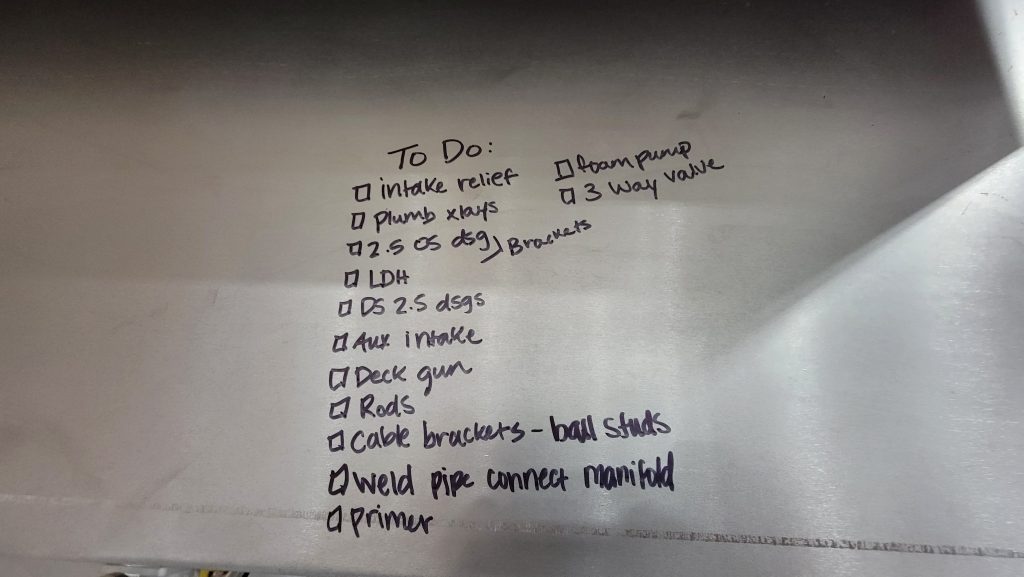 To Do:
intake relief
plumb xlays
2.5 OS dsg } Brackets
LDH
DS 2.5 dsgs
Aux intake
Deck gun
Rods
Cable brackets - ball studs
Weld pipe connect manifold
primer
foam pump
3 way valve